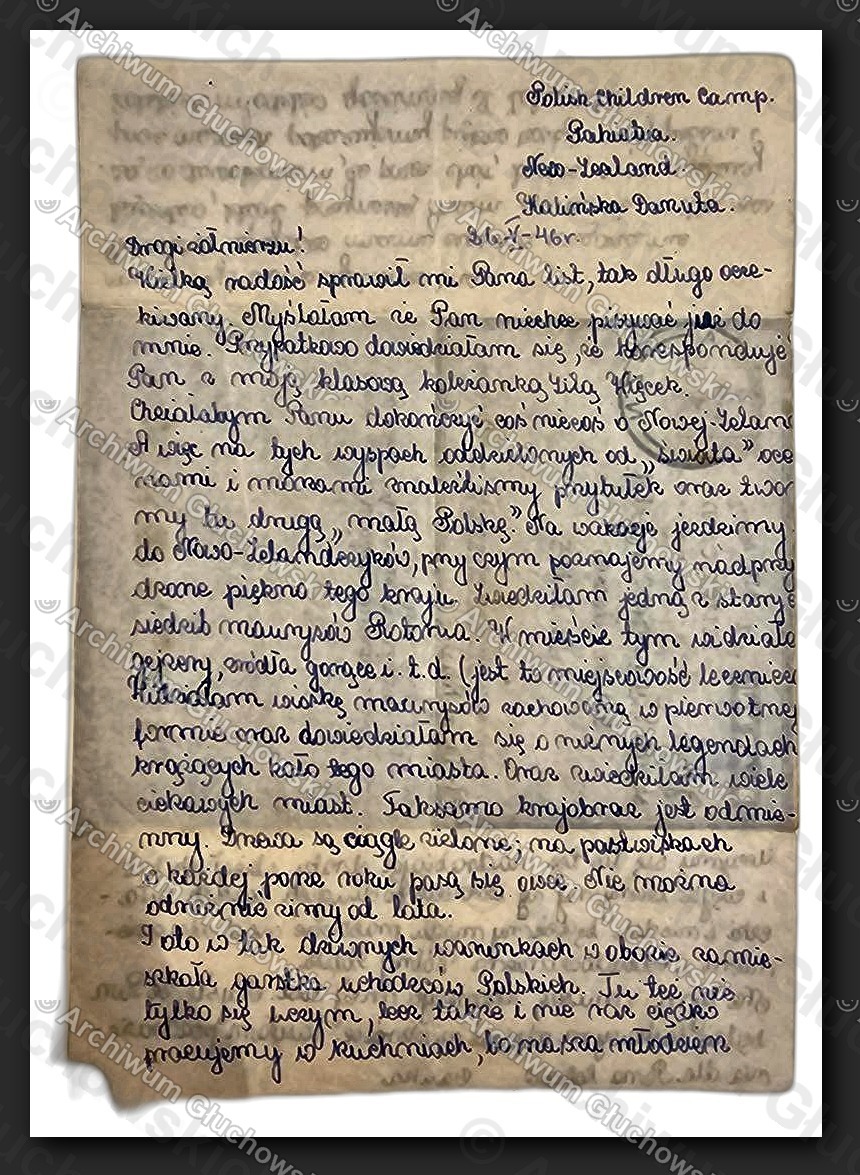 Polish Children Camp.
Pahiatua.
New-Zealand.
Kalińska Danuta.
26-V-46r.
Drogi żołnierzu!
Wielką radość sprawił mi Pana list, tak długo ocze-
kiwany. Myślałam że Pan niechce pisywać już do
mnie. Przypatkowo dowiedziałam się, że koresponduje
Pan z moją klasową koleżanką Więcek.
Chciałabym Panu dokończyć coś niecoś o Nowej-Zelan
A więc na tych wyspach oddzielonych od „świata" oce
nami i morzami znaleźliśmy przytułek oraz two
my tu drugą „małą Polskę." Na wakacje jeździmy
do Nowo-Zelandczyków, przy czym poznajemy nadprzy
dzone piękno tego kraju. Zwiedziłam jedną z stary
siedzib maurysów Rotorua. W mieście tym widziała
gejzery, źródła gorące i. t. d. (jest to miejscowość lecznicz
wioskę maurysów zachowaną w pierwotnej
formie oraz dowiedziałam się o różnych legendach
krążących koło tego miasta. Oraz zwiedziłam wiele
ciekawych miast. Taksamo krajobraz jest odmie-
nny. Drzewa są ciągle zielone; na pastwiskach
o każdej porze roku pasą się owce. Nie można
odróżnić zimy od lata.
I oto w tak dziwnych warunkach w obozie zamie-
szkała garstka uchodzców Polskich. Tu też nie
tylko się uczym, lecz także i nie raz ciężko
pracujemy w kuchniach, bo nasza młodzież
Archiwum Głuchowskich